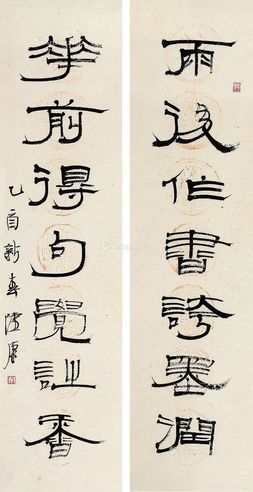 雨後作書誇墨潤
華前得句覺詩香
乙酉新春陸康